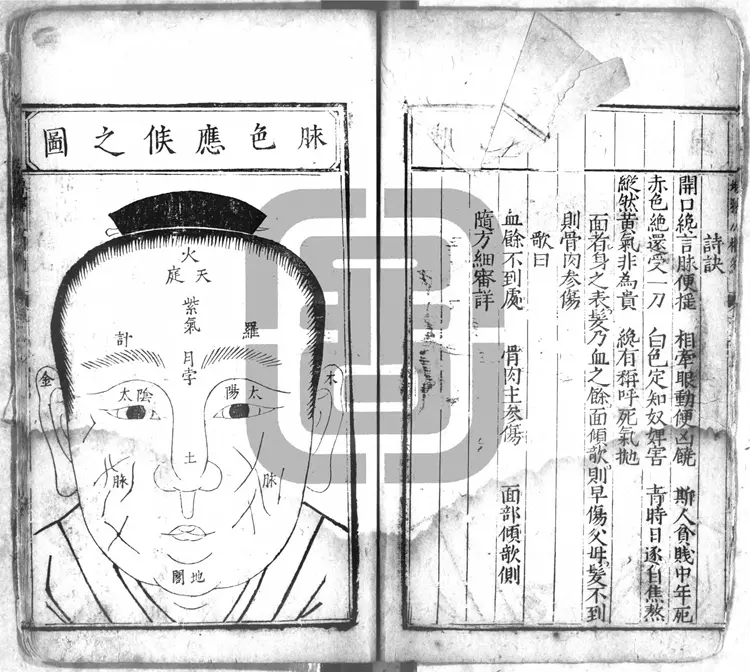 詩訣
開口纔言脉便摇　相牽眼動便凶饒　斯人貧賤中年死
赤色絶還受一刀　白色定知奴婢害　青時日逐自焦熬
縱然黄氣非為貴　纔有稱呼死氣拋
面者身之表髮乃血之餘面傾欹則早傷父母髮不到
則骨肉參傷
歌曰
血餘不到處　骨肉主參傷　面部傾欹側
隨方細審詳
脉色應候之圖
火
天
庭
紫氣
羅
計
月孛
木
金
太陽
太陰
土
脉
脉
地閣